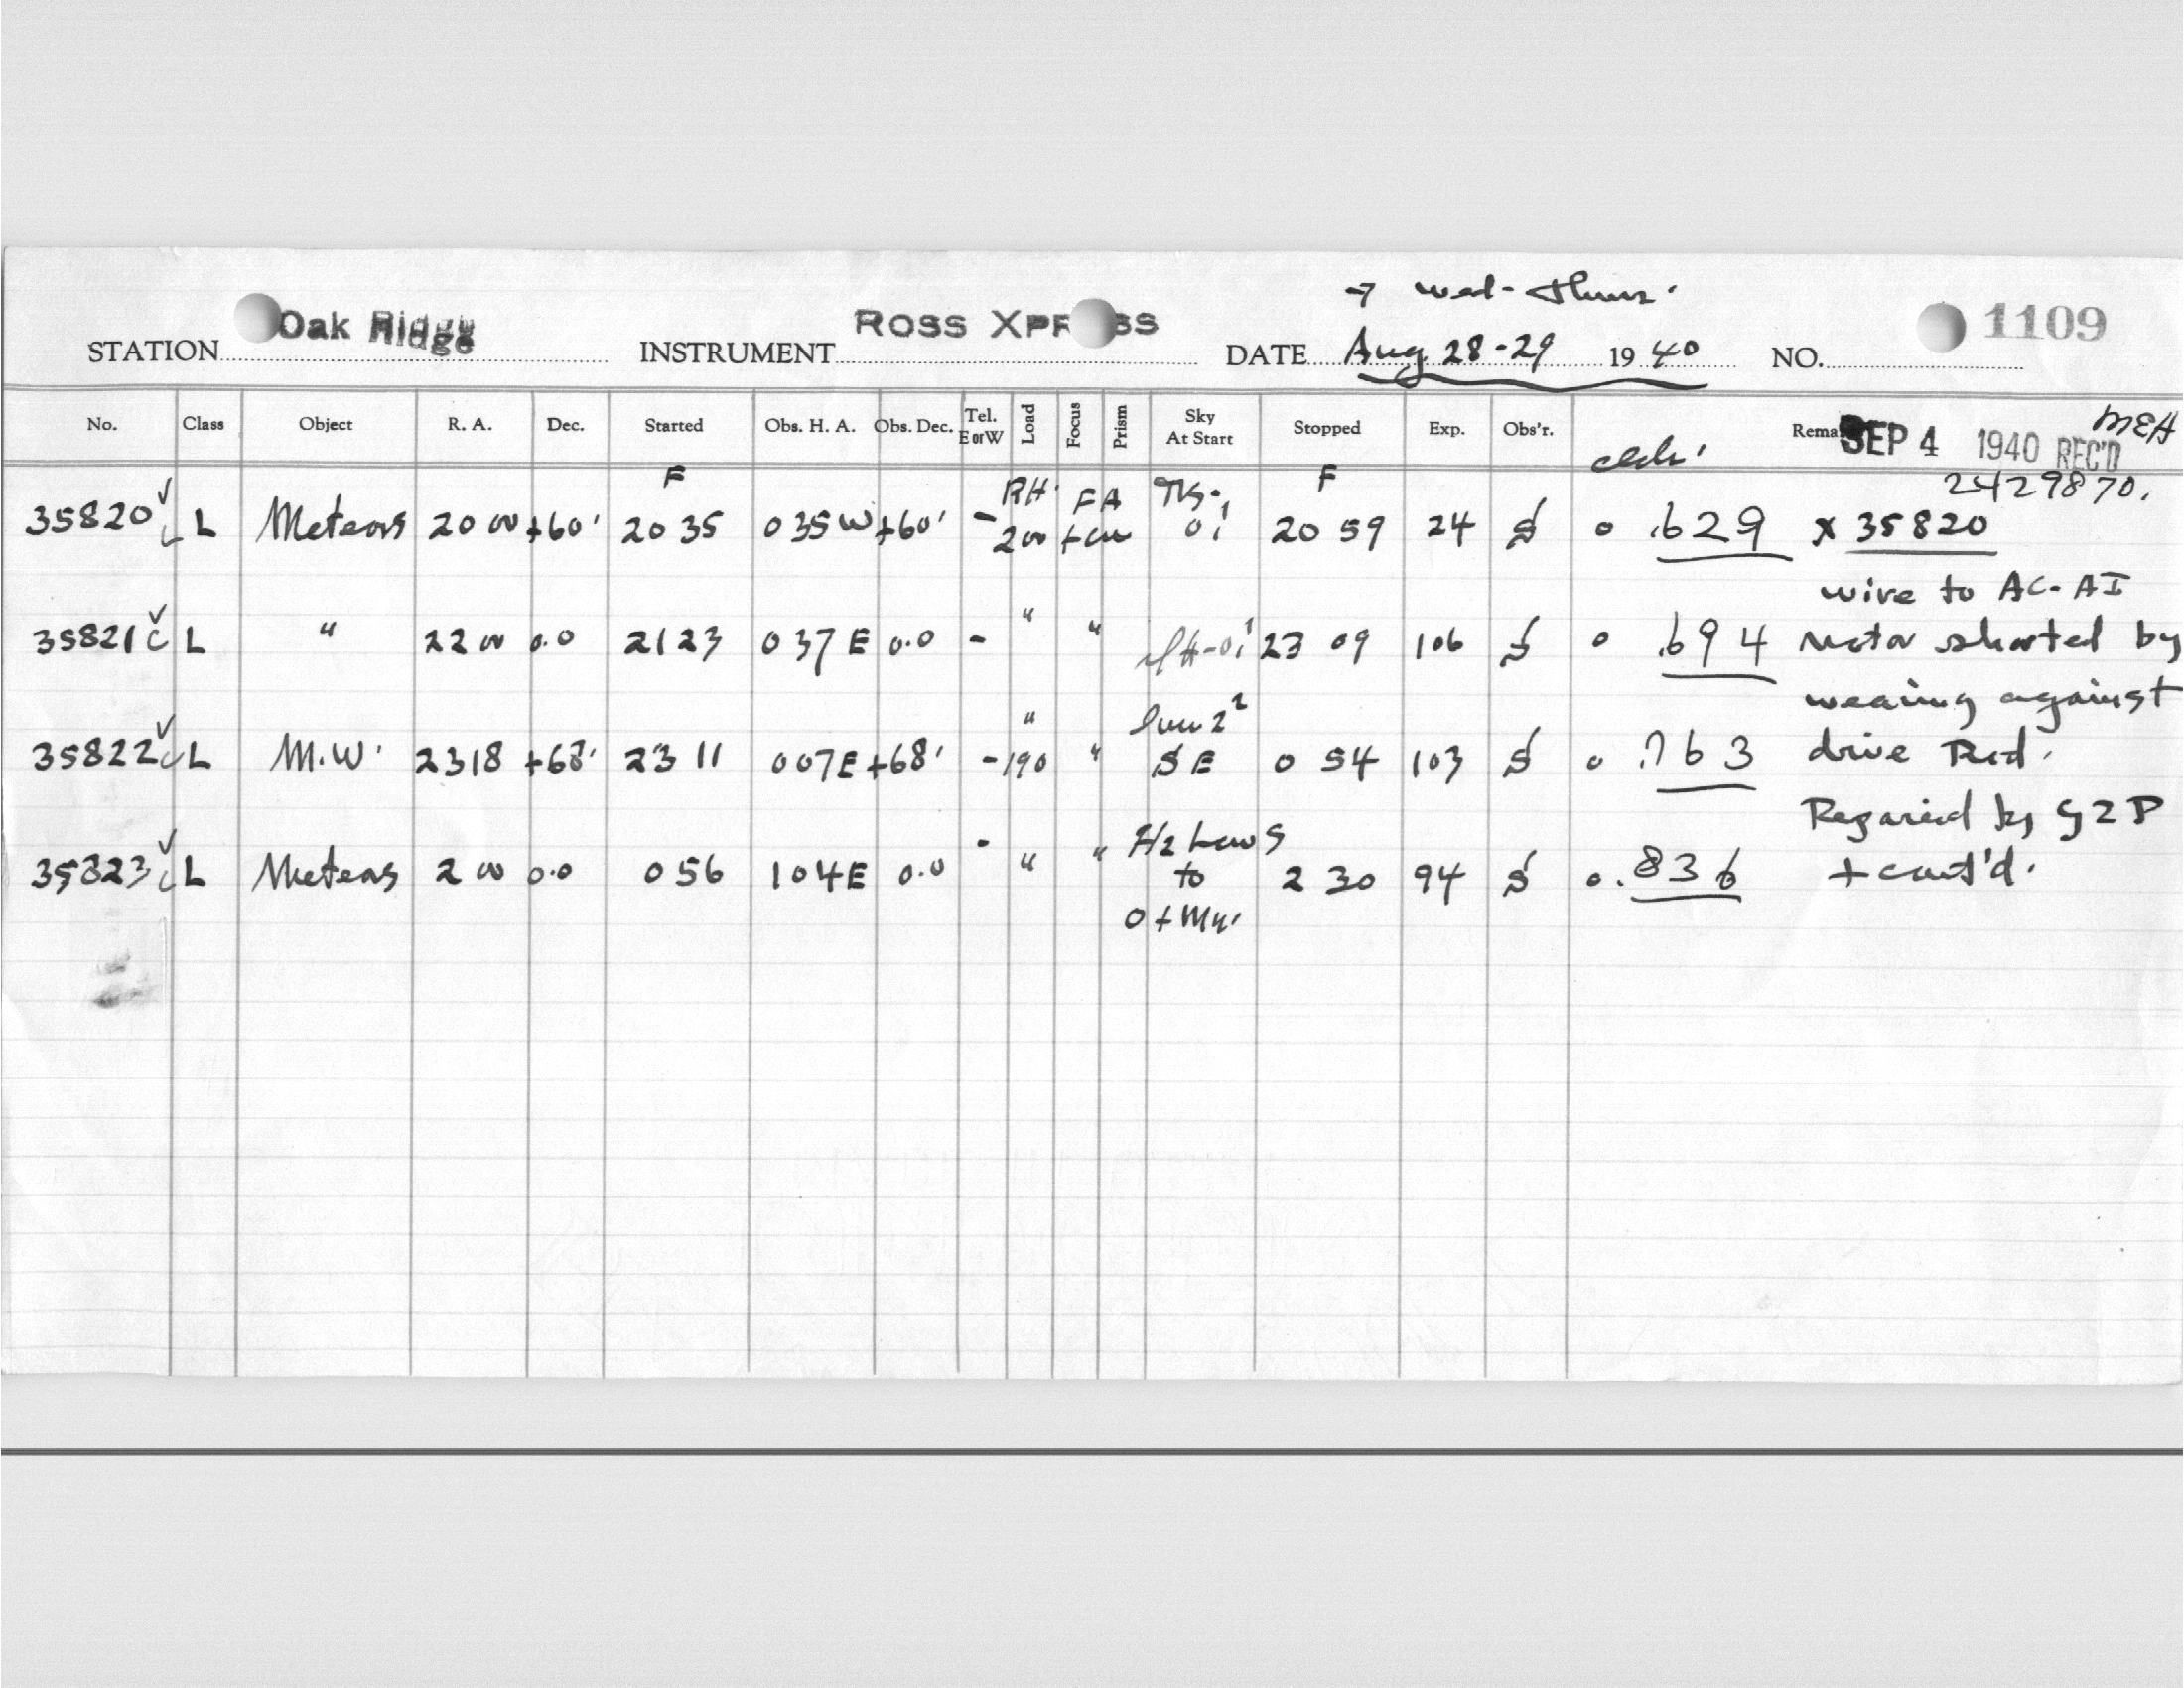 → Wed - Thurs.
STATION Oak Ridge INSTRUMENT ROSS XPRESS DATE Aug 28-29 1940 NO. 1109
No. Class Object R. A. Dec. Started Obs. H. A. Obs. Dec. Tel. E or W Load Focus Prism Sky At Start Stopped Exp. Obs'r. Remarks SEP 4 1940 REC'D MEH
F RH FA F 2429870.
35820 L Meteors 20 00 +60° 20 35 0 35 W +60° - 200 0 20 59 24 S 0 .629 x 35820
wire to AC-AI
35821 L " 22 00 0.0 21 23 0 37 E 0.0 - " " 23 09 106 S 0 .694 Motor shorted by
wearing against
35822 L M.W. 23 18 +68° 23 11 0 07 E +68° - " 190 " SE 0 54 103 S 0 .763 drive Rod.
by
35823 L Meteors 2 00 0.0 0 56 1 04 E 0.0 - " " Hz Low S to 2 30 94 S 0 .836 + cont'd.